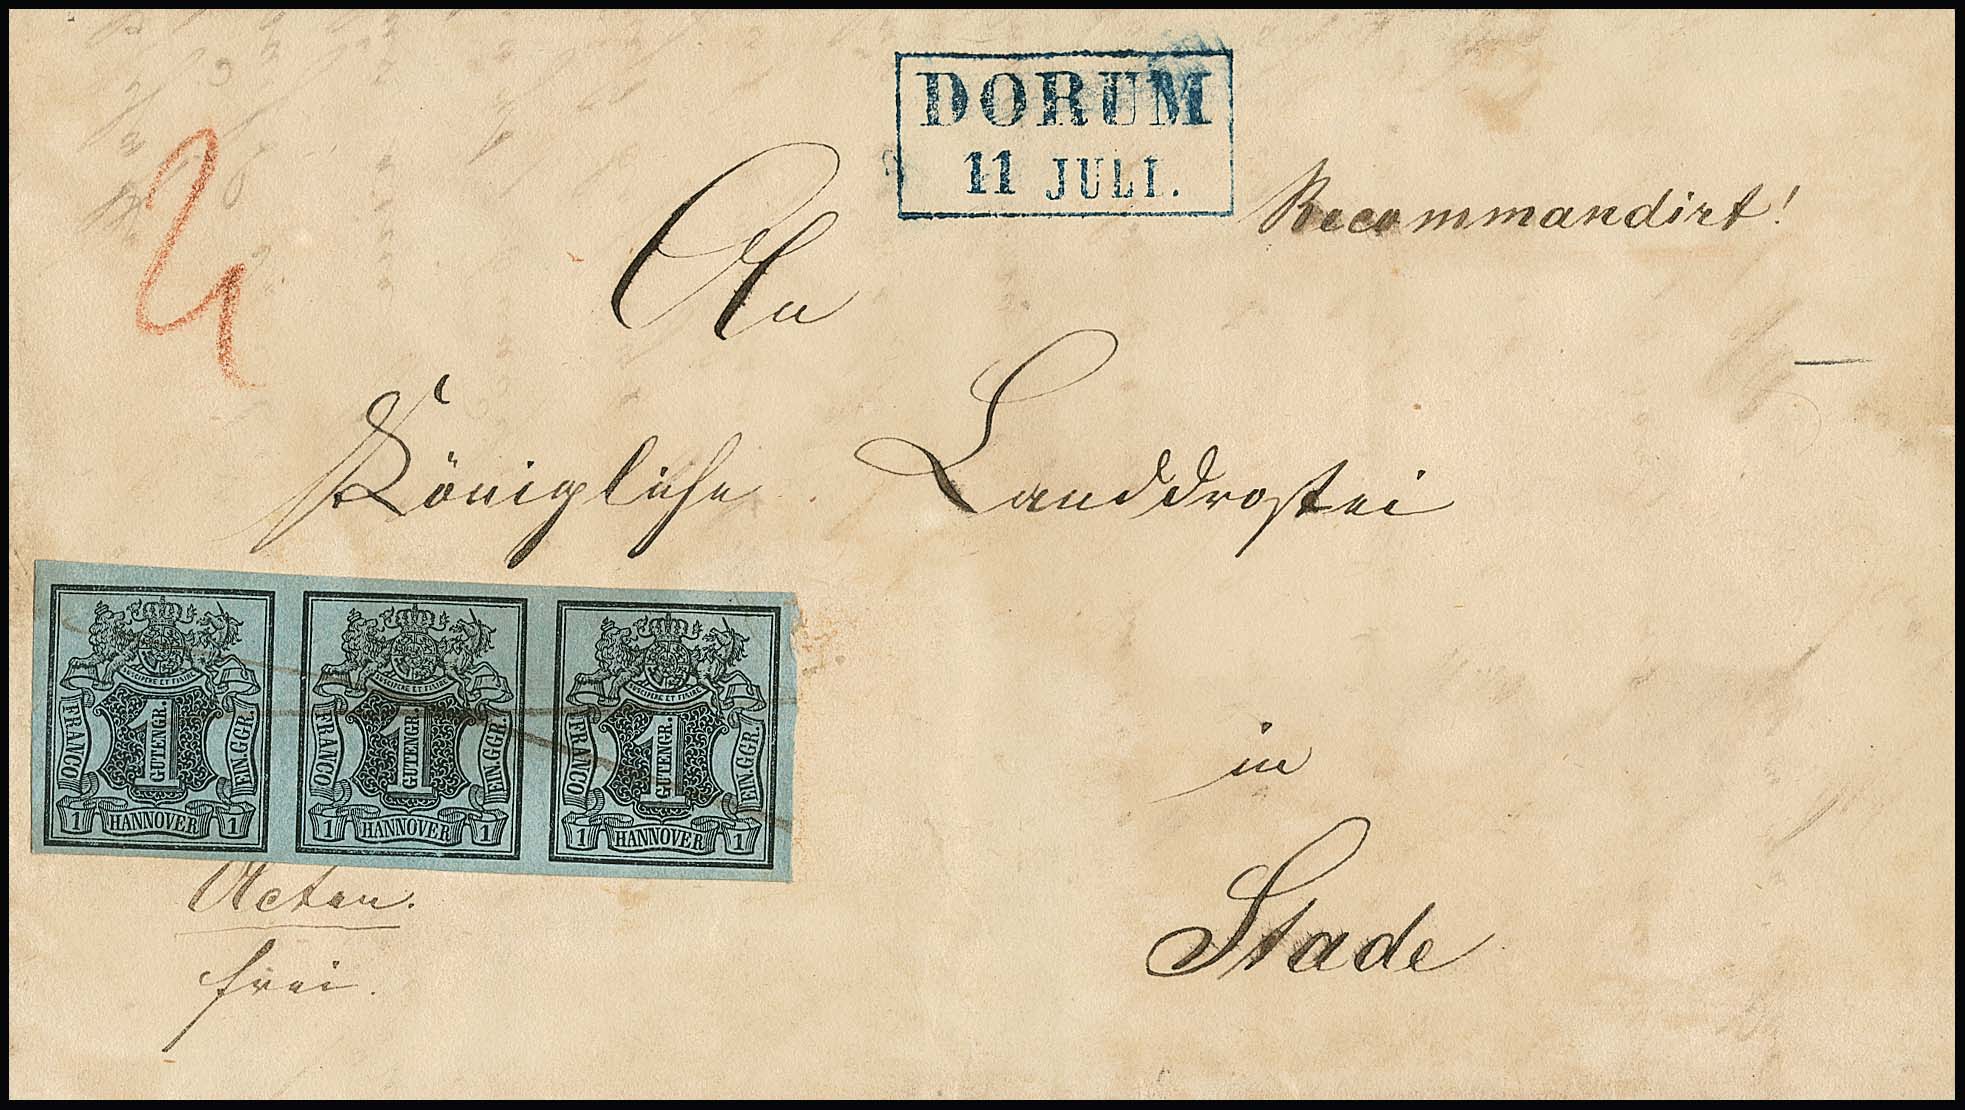 DORUM
11 JULI.
Recommandirt!
An
Königliche Landdrostei
in
Stade
SUSCIPERE ET FINIRE
FRANCO
1 GUTENGR.
EIN.GGR.
1 HANNOVER 1
SUSCIPERE ET FINIRE
FRANCO
1 GUTENGR.
EIN.GGR.
1 HANNOVER 1
SUSCIPERE ET FINIRE
FRANCO
1 GUTENGR.
EIN.GGR.
1 HANNOVER 1
Acten.
frei.